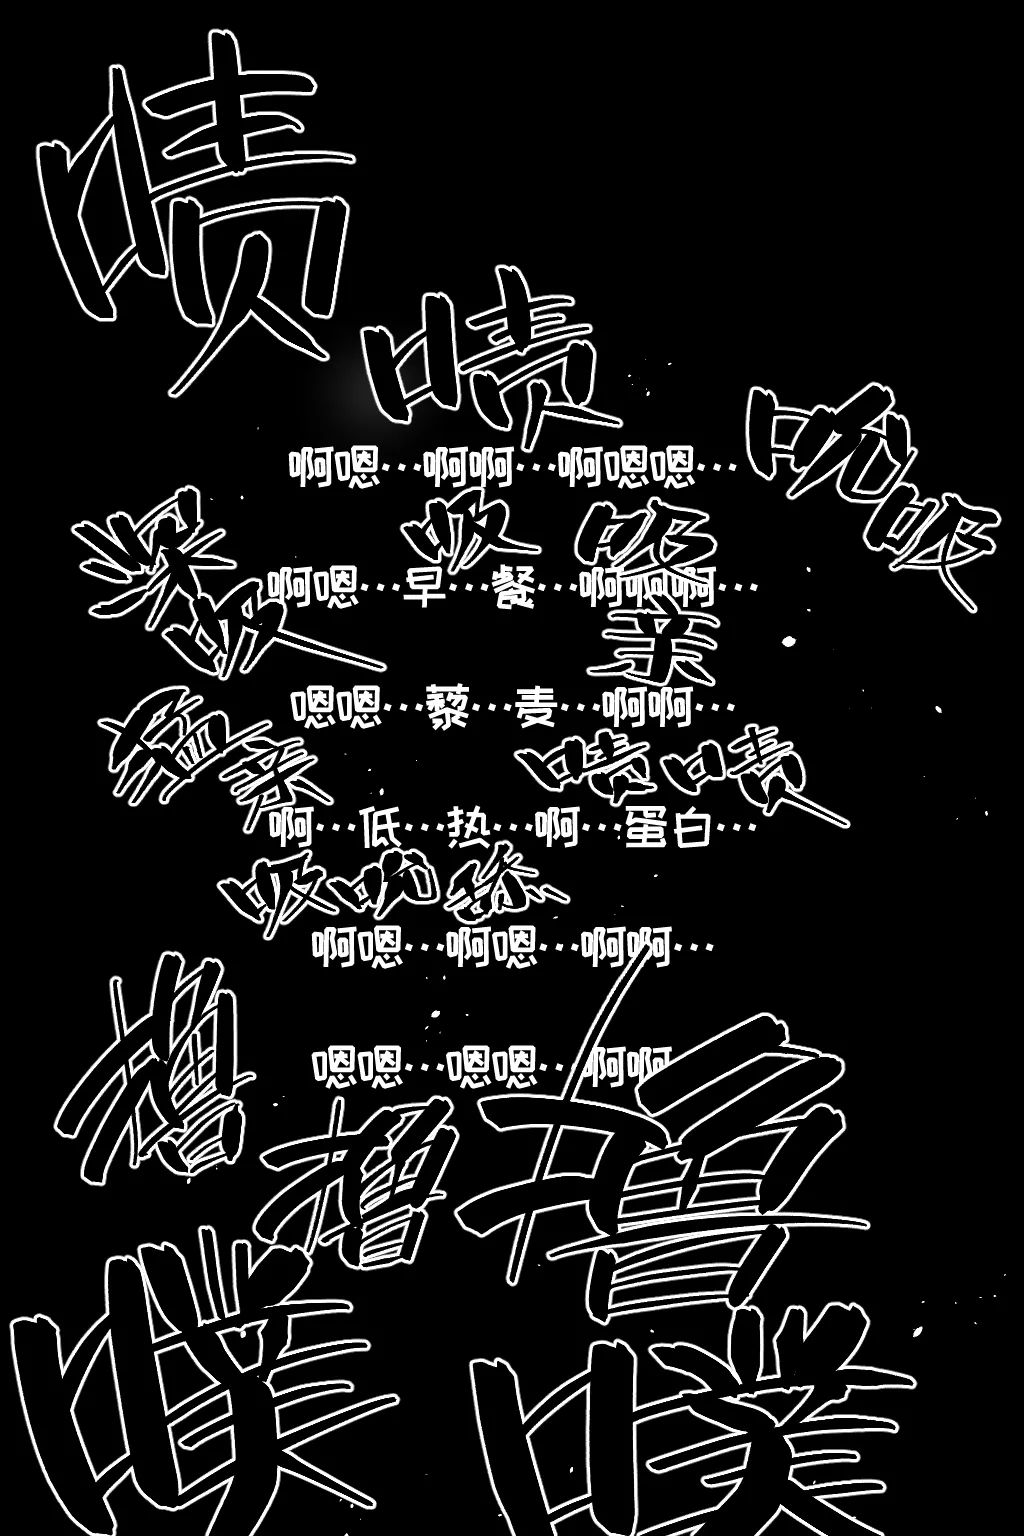 啧
啧
吮
吸
啊嗯…啊啊…啊嗯嗯…
吸
吸
啊嗯…早…餐…啊啊啊…
吸
亲
嗯嗯…藜…麦…啊啊…
亲
啧啧
啊…低…热…啊…蛋白…
吸吮舔
啊嗯…啊嗯…啊啊…
嗯嗯…嗯嗯…啊啊
撸
撸
撸
噗
噗